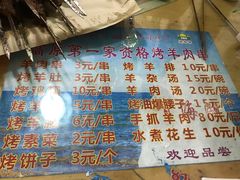 第一家资格烤羊肉串
羊肉串 3元/串
烤羊肚 3元/串
烤鸡 10元/串
烤羊 5元/串
烤 6元/串
烤素菜 2元/串
烤饼子 3元/个
烤羊排 10元/
杂汤 15元/碗
羊肉汤 20元/碗
烤油爆腰子 15元/
手抓羊 80元/
水煮花生 10元/
欢迎品尝